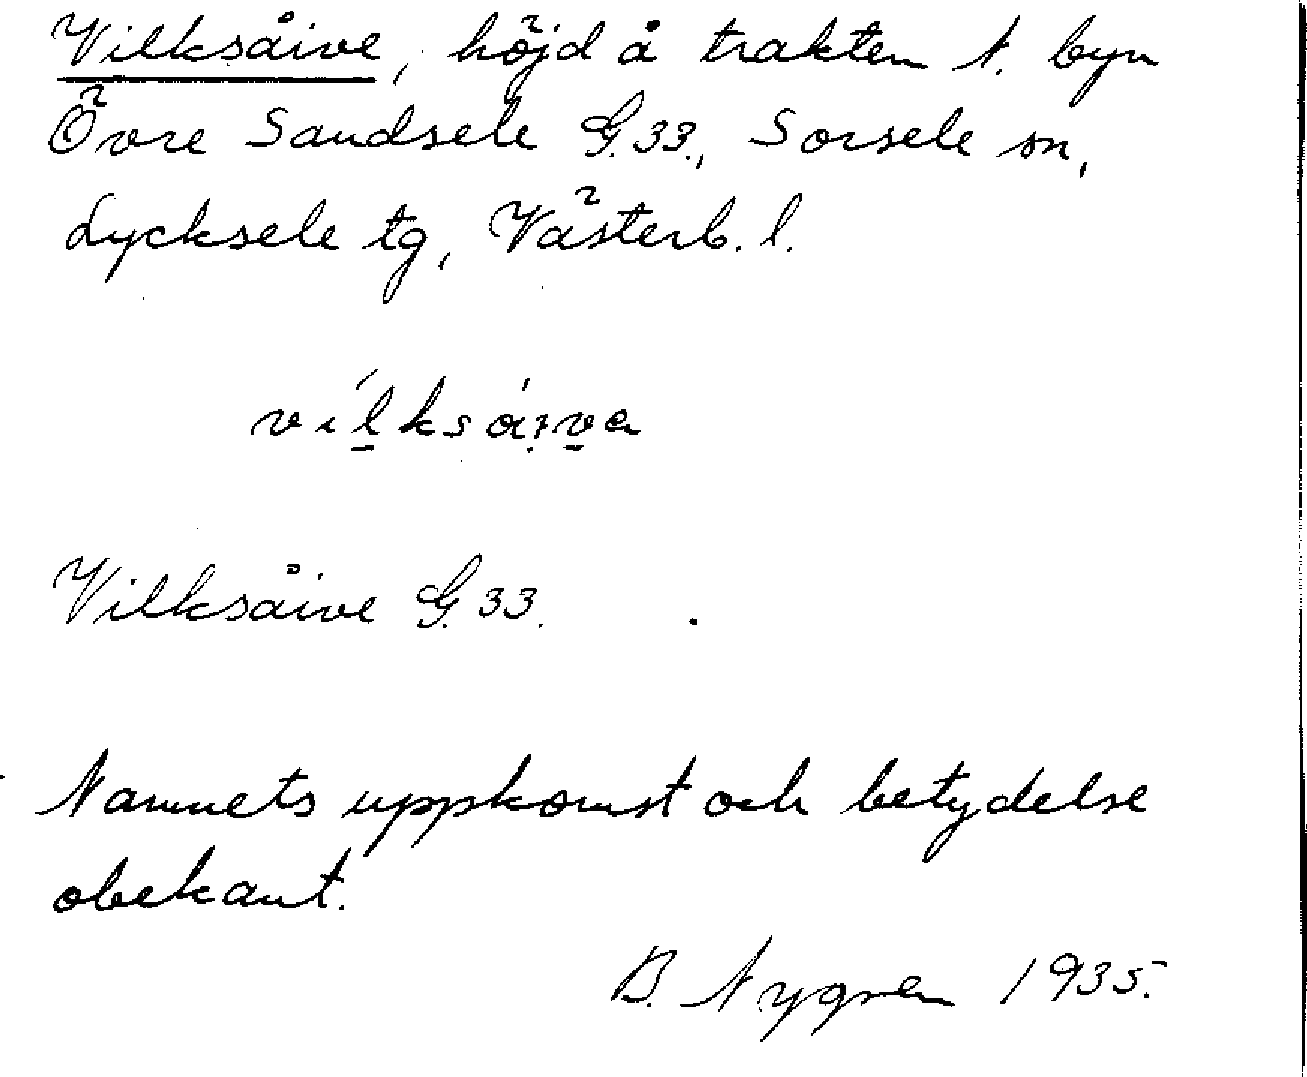 Vilksåive, höjd å trakten t. byn
Övre Sandsele G.33., Sorsele sn,
Lycksele tg, Västerb. l.
vilksåiva
Vilksåive G.33.
Namnets uppkomst och betydelse
obekant.
B. Nygren 1935.